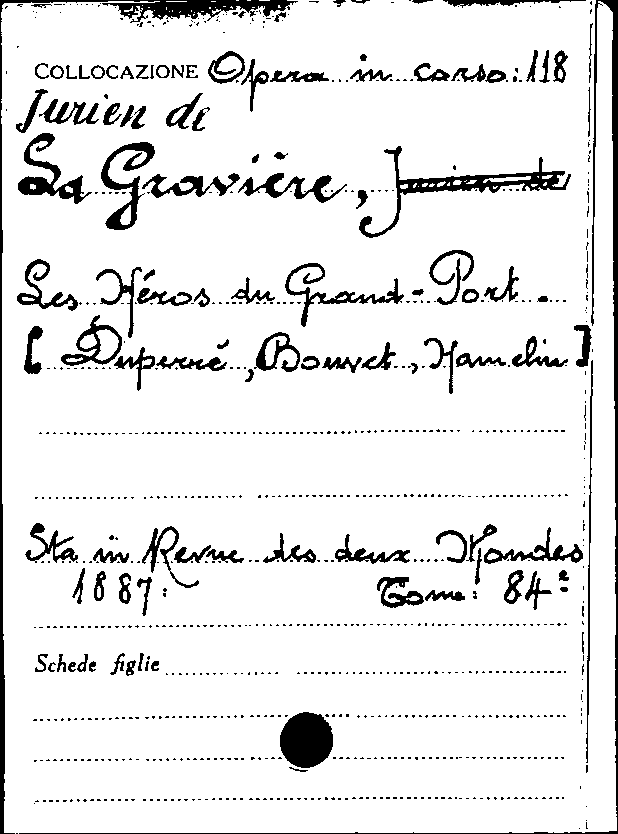 COLLOCAZIONE Opera in corso: 118
Jurien de
La Gravière, Jurien de
Les Héros du Grand-Port.
[Duperré, Bouvet, Hamelin]
Sta in Revue des deux Mondes
1887: Tome: 84º
Schede figlie